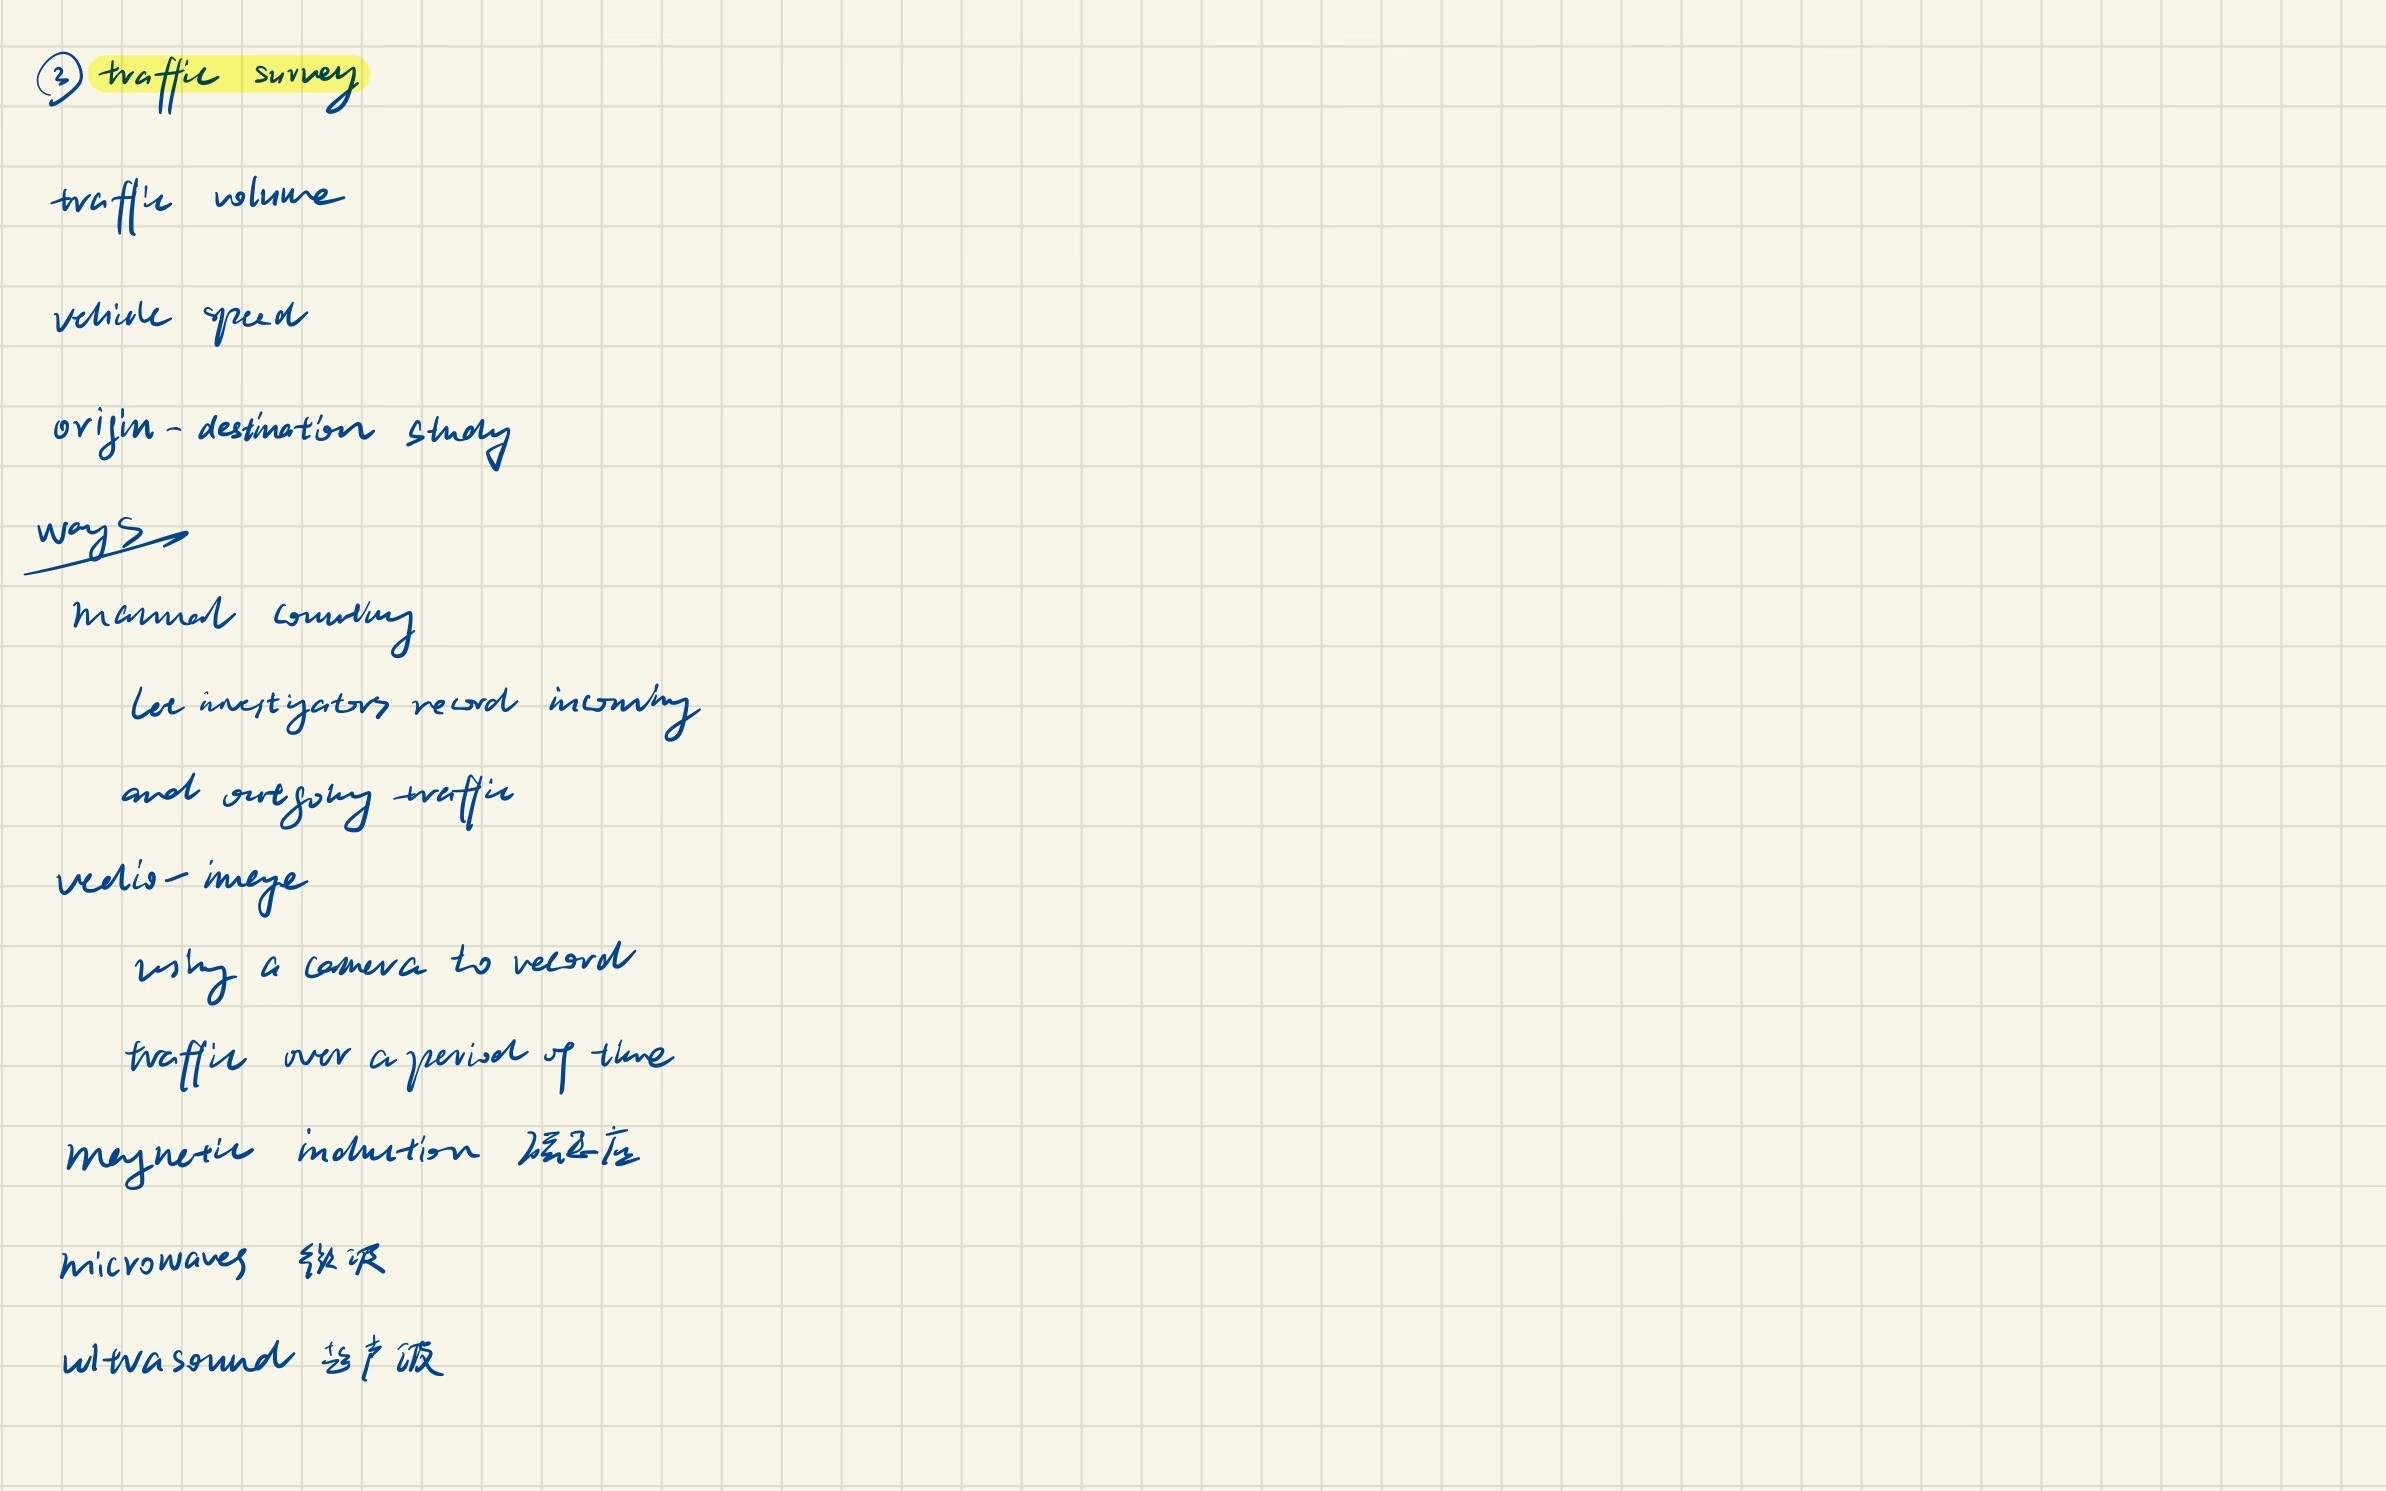 ③ traffic survey
traffic volume
vehicle speed
origin - destination study
ways
manual counting
Let investigators record incoming
and outgoing traffic
vedio - image
using a camera to record
traffic over a period of time
magnetic induction 磁感应
microwaves 微波
ultrasound 超声波